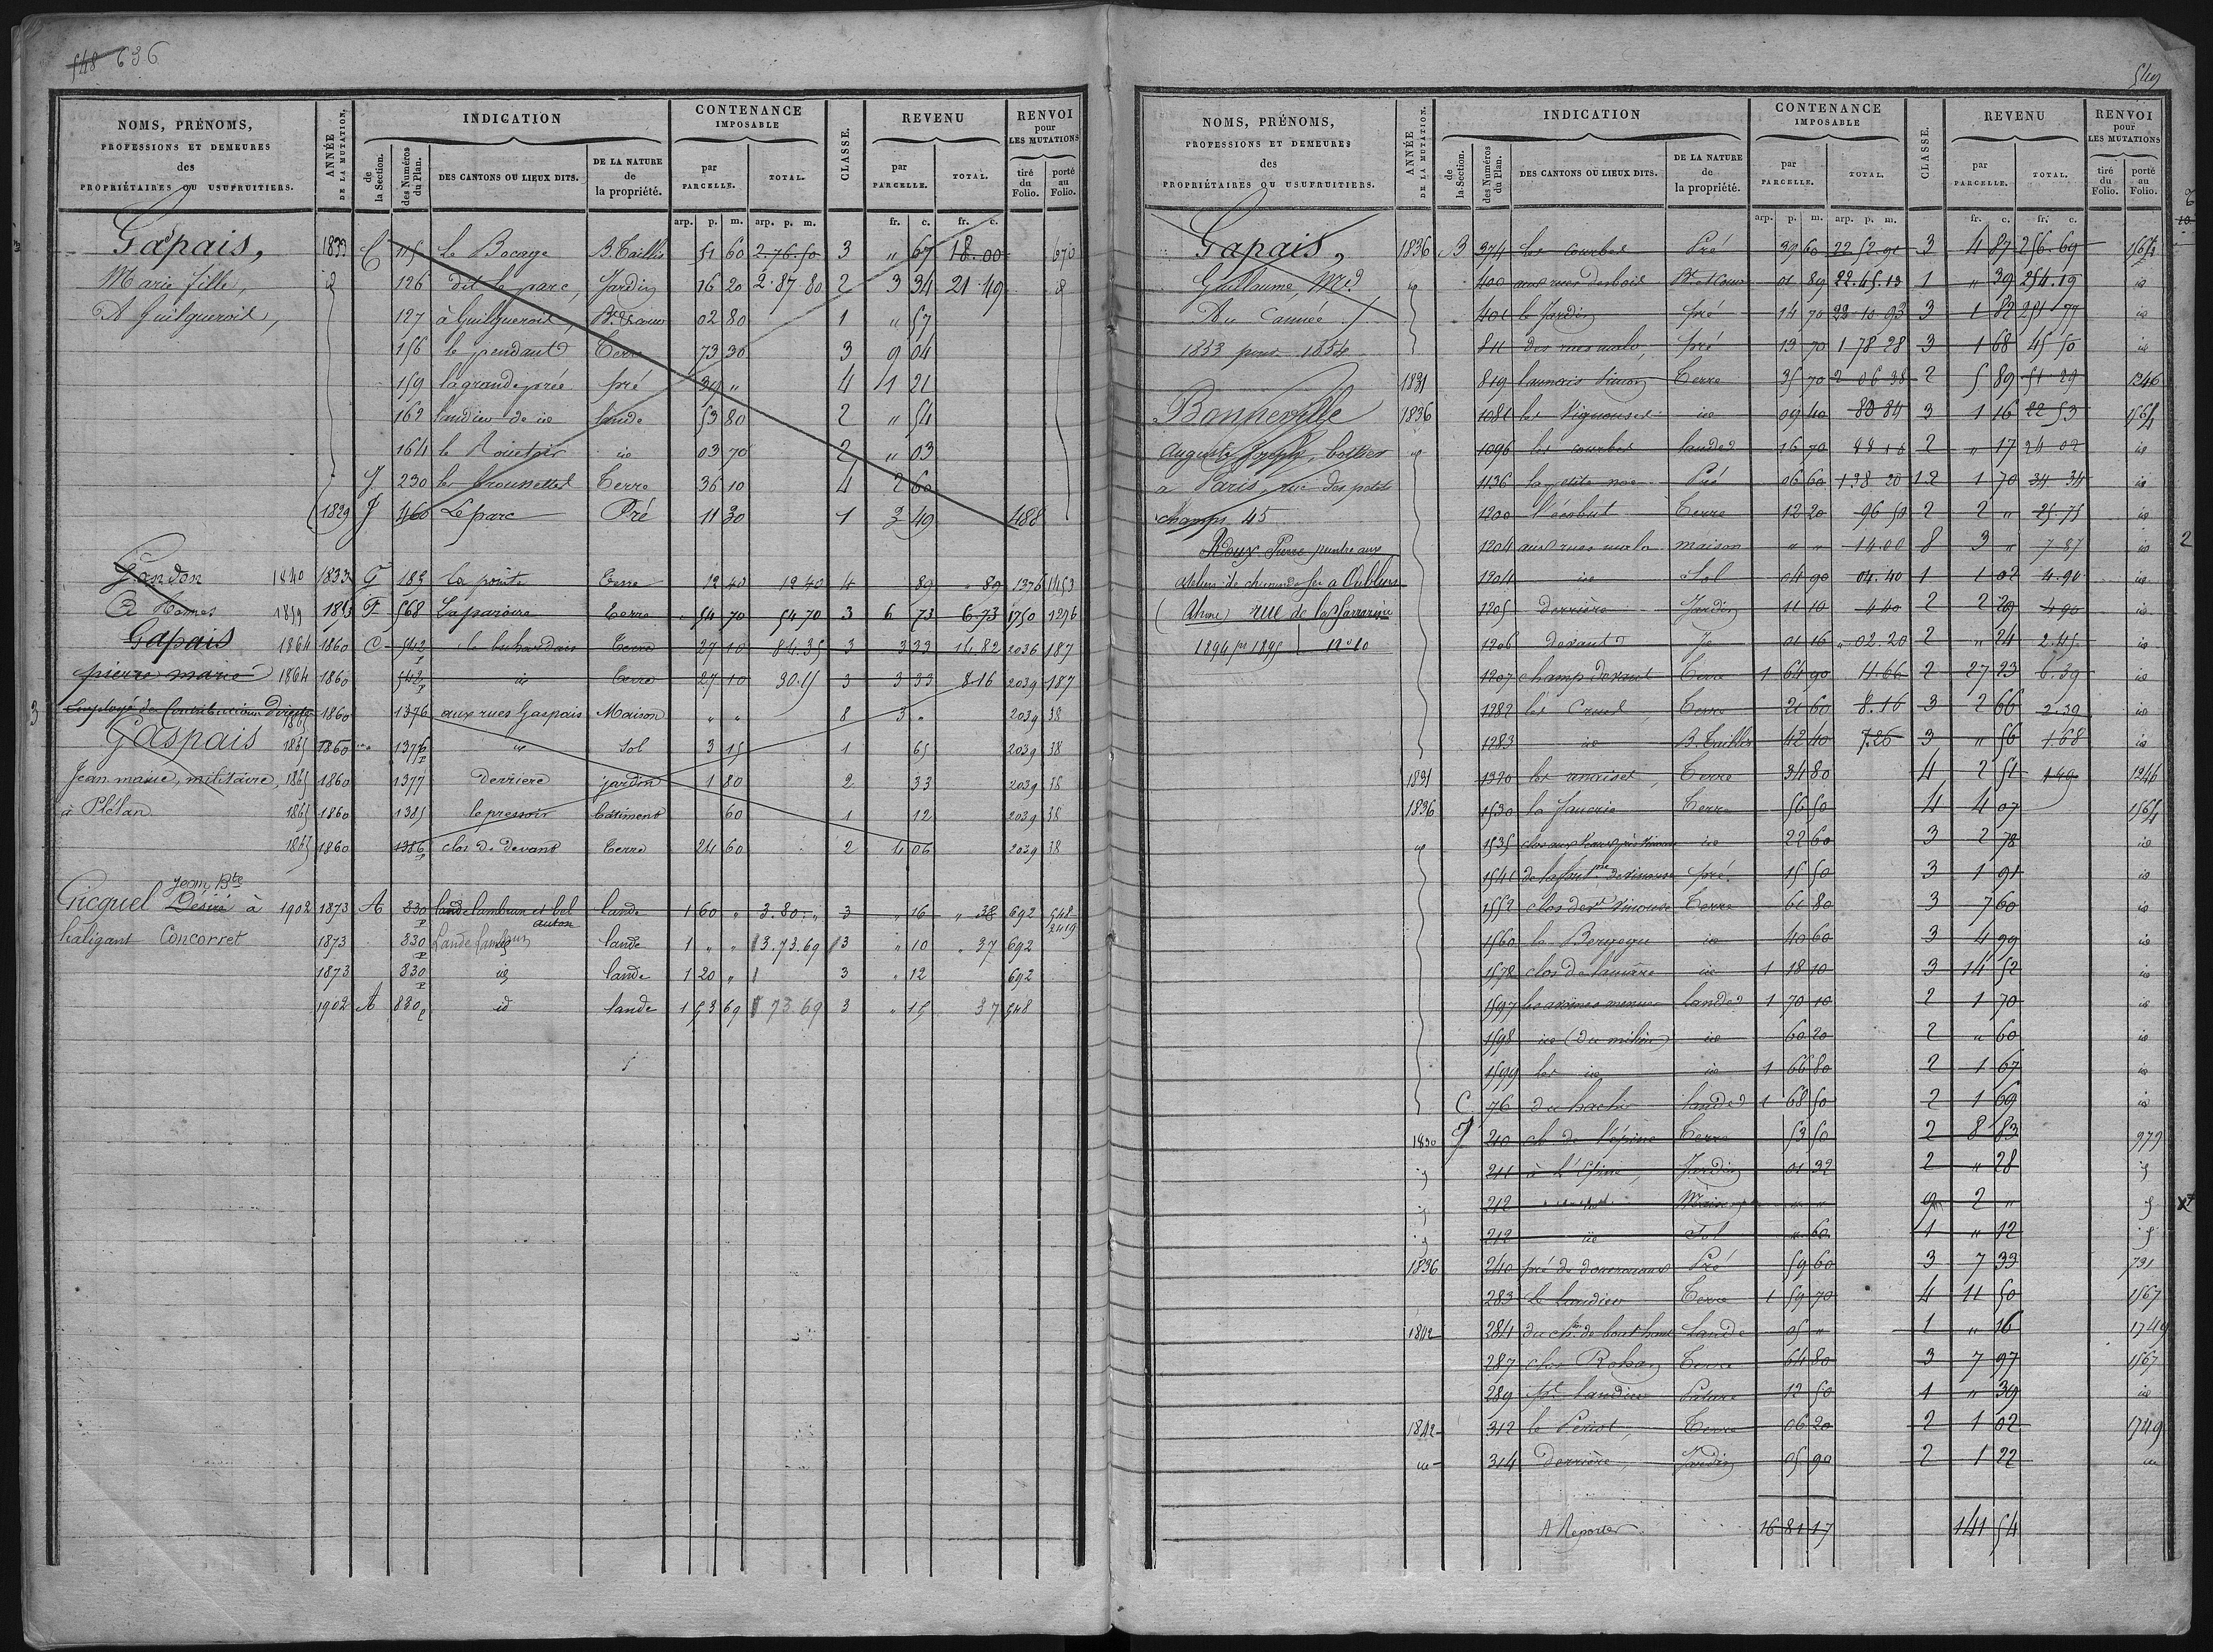 548 636
NOMS, PRÉNOMS, PROFESSIONS ET DEMEURES des PROPRIÉTAIRES OU USUFRUITIERS.
ANNÉE DE LA MUTATION.
INDICATION
de la Section.
des Numéros du Plan.
DES CANTONS OU LIEUX DITS.
DE LA NATURE de la propriété.
CONTENANCE IMPOSABLE
par PARCELLE.
TOTAL.
CLASSE.
REVENU
par PARCELLE.
TOTAL.
RENVOI pour LES MUTATIONS
tiré du Folio.
porté au Folio.
arp. p. m. arp. p. m. fr. c. fr. c.
Gapais, 1833 C 115 le Bocage B. Taillis 51 60 2.76.50 3 " 67 18.00 670
Marie fille, id 126 dit le parc, Jardin 16 20 2.87 80 2 3 34 21 49 id
A Guilgueroil, 127 à Guilgueroil, 02 80 1 " 57
156 le pendant Terre 73 30 3 9 04
159 la grande prée pré 39 " 4 1 21
162 landier de id lande 53 80 2 " 54
164 le Rouetoir id 03 70 2 " 03
J 230 les brousettes Terre 36 10 4 2 60
1829 J 460 Le parc Pré 11 30 1 3 49 488
Gandon 1840 1833 G 183 la pointe Terre 12 40 12 40 4 89 " 89 1376 1453
1859 1853 F 568 La paroire Terre 54 70 54 70 3 6 73 6.73 1750 1296
Gapais 1864 1860 C 542 p Terre 27 10 84.35 3 3 33 16.82 2036 187
pierre marie 1864 1860 542 p id Terre 27 10 30.15 3 3 33 8.16 2039 187
3 Employé des Contributions Directes 1865 1860 1376 aux rues Gaspais Maison " " 8 3 " 2039 38
Gaspais 1865 1860 1376 p id Sol 3 15 1 65 2039 38
Jean marie, militaire, 1865 1860 1377 derriere jardin 1 80 2 33 2039 38
à Plélan. 1865 1860 1385 le pressoir bâtiment 60 1 12 2039 38
1865 1860 1386 p clos de devant Terre 24 60 2 4 06 2039 38
Jean Bte
Gicquel Désiré à 1902 1873 A 830 p lande lambrun et bel auton lande 1 60 " 3.80." 3 " 16 " 38 692 548 2419
haligant Concorret 1873 830 p Lande lambrun lande 1 " " 3.73.69 3 " 10 " 37 692
1873 830 p id lande 1 20 " 3 " 12 692
1902 A 830 p id lande 1 53 69 73.69 3 " 15 37 548
549
NOMS, PRÉNOMS, PROFESSIONS ET DEMEURES des PROPRIÉTAIRES OU USUFRUITIERS.
ANNÉE DE LA MUTATION.
INDICATION
de la Section.
des Numéros du Plan.
DES CANTONS OU LIEUX DITS.
DE LA NATURE de la propriété.
CONTENANCE IMPOSABLE
par PARCELLE.
TOTAL.
CLASSE.
REVENU
par PARCELLE.
TOTAL.
RENVOI pour LES MUTATIONS
tiré du Folio.
porté au Folio.
arp. p. m. arp. p. m. fr. c. fr. c.
Gapais, 1836 B 374 les courbes Pré 39 60 22 52.91 3 4 87 256.69
Guillaume, Md id 400 aux rues 01 89 22.45.13 1 " 39 254.19 id
Au Cannée 401 le Jardin pré 14 70 22 10 93 3 1 82 251 77 id
1853 pour 1854 811 des rues malo, pré 13 70 1 78 28 3 1 68 45 50 id
1831 819 Terre 35 70 2 06 38 2 5 89 51 29 1246
Bonneville 1836 1081 les Vignouses id 09 40 80 84 3 1 16 22 53 1564
Auguste Joseph, id 1096 les courbes landes 16 70 88 16 2 " 17 24 02 id
a Paris, rue des petits 1136 la petite noe Pré 06 60 1.28 20 1.2 1 70 34 34 id
champs 45 1200 l'écobut Terre 12 20 96 50 2 2 " 25.75 id
Adoux Pierre peintre aux 1204 aux rues malo maison " " 14 00 8 3 " 7 87 id
ateliers de chemin de fer a Oublurs 1204 id Sol 04 90 04.40 1 1 02 4.90 id
(Rhône) rue de la Sarrasine 1205 derrière Jardin 11 10 4 40 2 2 29 4 90 id
1894 pr 1895 1206 devant 01 16 " 02.20 2 " 24 2.45 id
1207 champ devant Terre 1 64 90 11.66 2 27 23 6.39 id
1282 les Terre 21 60 8.16 3 2 66 2.39 id
1283 id B. Taillis 42 40 7.26 3 " 56 1.68 id
1831 1320 les Terre 34 80 4 2 51 1 99 1246
1836 1530 la fauerie Terre 56 50 4 4 07 1564
id 1535 id 22 60 3 2 78 id
1541 pré 15 50 3 1 91 id
1552 Terre 61 80 3 7 60 id
1560 id 40 60 3 4 99 id
1578 id 1 18 10 3 14 52 id
1597 landes 1 70 10 2 1 70 id
1598 id (du milieu) id 60 20 2 " 60 id
1599 les id id 1 66 80 2 1 67 id
C 76 du hachis landes 1 68 50 2 1 69 id
1830 J 210 ch de l'épine Terre 53 50 2 8 83 979
211 à l'Épine, Jardin 01 32 2 " 28
212 Maison " " 9 2 "
212 id Sol " 60 1 " 12
1836 240 Pré 59 60 3 7 33 731
283 Le Landier Terre 1 59 70 4 11 50 1567
1842 284 lande 05 " 1 " 16 1749
287 clos Rohan Terre 64 80 3 7 97 1567
289 Pature 12 50 1 " 39 id
1842 312 Terre 06 20 2 1 02 1749
id 314 derrière, Jardin 05 90 2 1 22 id
A Reporter 16 81 17 141 54